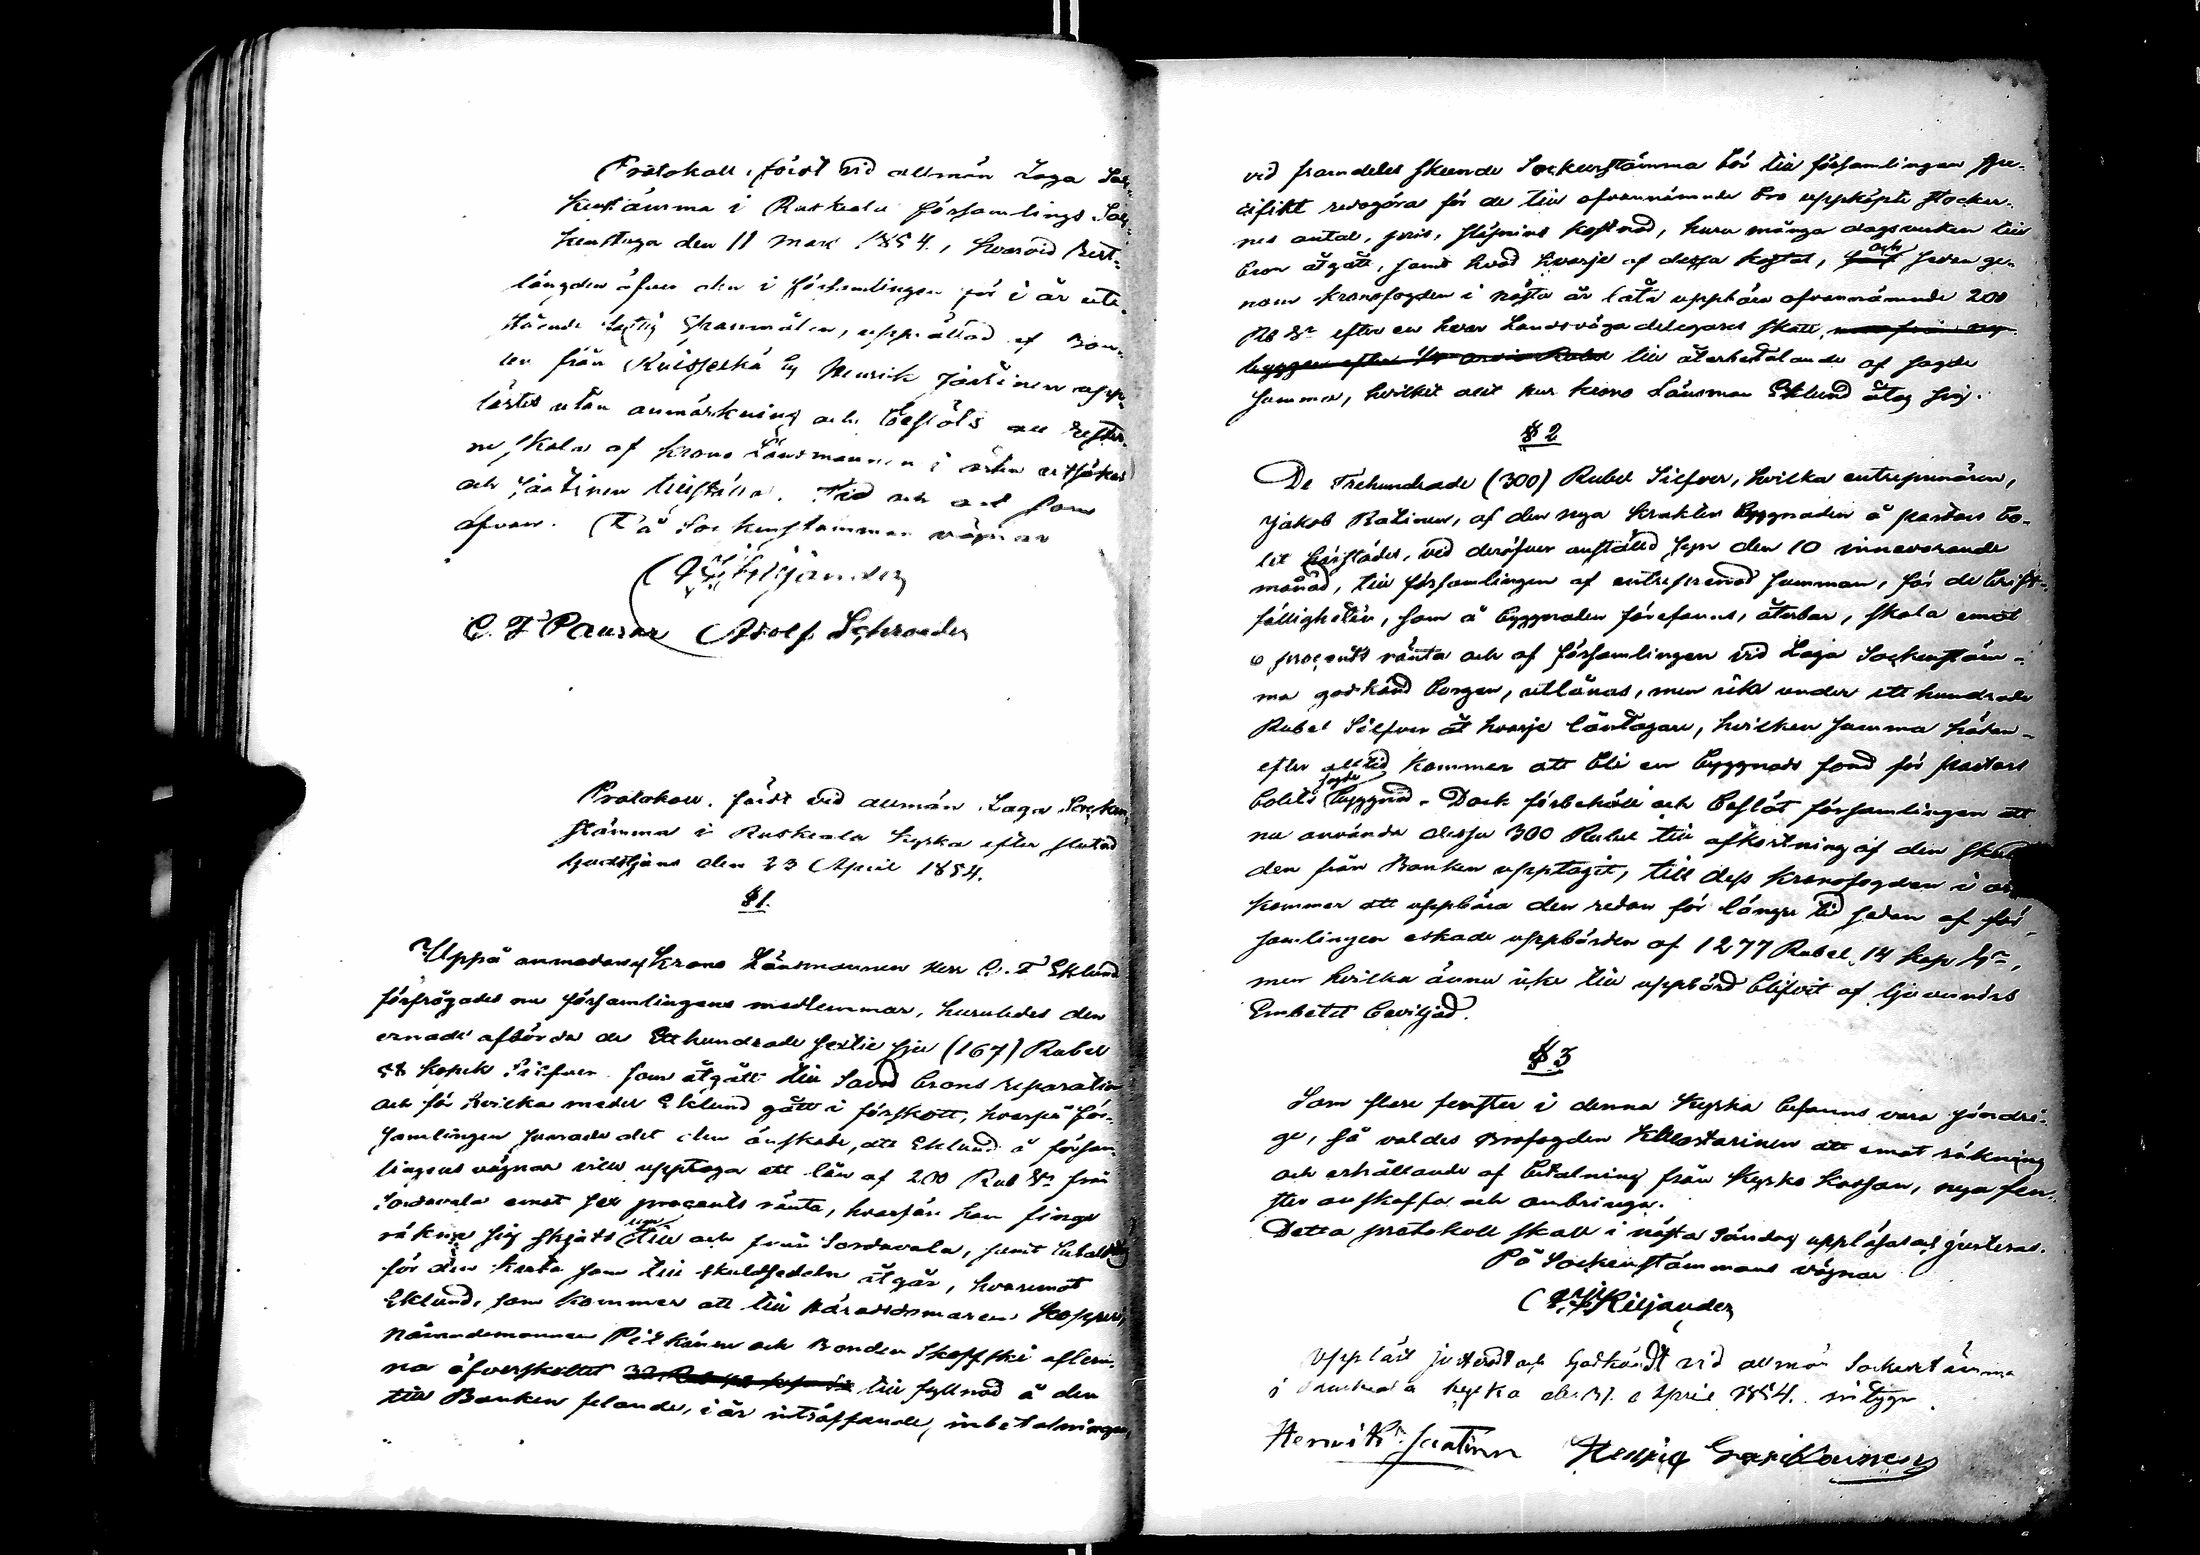 Protokoll, fördt vid allmän Laga Soc-
kenstämma i Ruskeala församlings Soc-
kenstuga den 11 Mars 1854., hvarvid Rest-
längden öfver den i församlingen för i år ute-
stående Spannmålen, upprättad af Bon-
den från by Henrik Jaatinen upp-
lästes utan anmärkning och beslöts att rester-
ne skola af Krono Länsmannen i orten utsökas
och Jaatinen tillställa. Tid och ort som
ofvan. På Sockenstämmans vägnar
Kiljander
C. F. Adolf Schroeder
Protokoll, fördt vid allmän Laga Socken-
stämma i Ruskeala kyrka efter slutad
Gudstjenst den 23 April 1854.
§ 1.
Uppå anmodan af Krono Länsmannen Herr C. F. Eklund
förfrågades nu församlingens medlemmar, huruledes den
ernade afbörda de Etthundrade sextio sju (167) Rubel
58 kopek Silfver som åtgått till brons reparation
och för hvilka medel Eklund gått i förskott, hvarpå för-
samlingen svarade det den önskade, att Eklund å försam-
lingens vägnar ville upptaga ett lån af 200 Rub Sr från
Sordavala emot sex procents ränta, hvarför han finge
räkna sig skjuts upp till och från Sordavala, samt betalning
för den karta som till skuldsedeln åtgår, hvaremot
Eklund, som kommer att till Häradsdomaren
Nämndemannen Pitkänen och Bonden aflem-
na öfverskottet till fyllnad å den
till Banken felande, i år inträffande, inbetalningen,
vid framdeles skeende Sockenstämma bör till församlingen spe-
cifikt redogöra för de till ofvannämnde bro uppköpte stockar-
nes antal, pris, kostnad, huru många dagsverken till
bron åtgått, samt hvad hvarje af dessa kostat, och sedan ge-
nom kronofogden i nästa år låta uppbära ofvannämnde 200
Rb Sr efter en hvar Landsväga delegares skatt,
till återbetalande af sagde
summa, hvilket allt Herr Krono Länsman Eklund åtog sig.
§ 2
De Trehundrade (300) Rubel Silfver, hvilka entreprenören,
Jakob Ratinen, af den nya byggnaden å pastors bo-
let, vid deröfver anställd syn den 10 innevarande
månad, till församlingen af entreprenad summan, för de brist-
fälligheter, som å byggnaden förefanns, återbar, skola emot
6 procents ränta och af församlingen vid Laga Sockenstäm-
ma godkänd borgen, utlånas, men icke under ett hundrade
Rubel Silfver åt hvarje låntagare, hvilken summa hädan-
efter alltid kommer att bli en byggnads fond för pastors
bolets sagde byggnad. Dock förbehöll och beslöt församlingen att
nu använda dessa 300 Rubel till afkortning af den skul-
den från Banken upptagit, till dess kronofogden i år
kommer att uppbära den redan för längre tid sedan af för-
samlingen äskade uppbörden af 1277 Rubel 14 kop Sr,
men hvilka ännu icke till uppbörd blifvit af Guvernörs
Embetet beviljad.
§ 3
Som flere fenster i denna kyrka befanns vara söndri-
ge, så valdes Brofogden att emot räkning
och erhållande af betalning från Kyrko Kassan, nya fen-
ster anskaffa och anbringa.
Detta protokoll skall i nästa Söndag uppläsas och justeras.
På Sockenstämmans vägnar
Kiljander
Uppläst justeradt och Godkändt vid allmän Sockenstämma
i Ruskeala kyrka den April 1854. intyga
Henrik Jaatinen